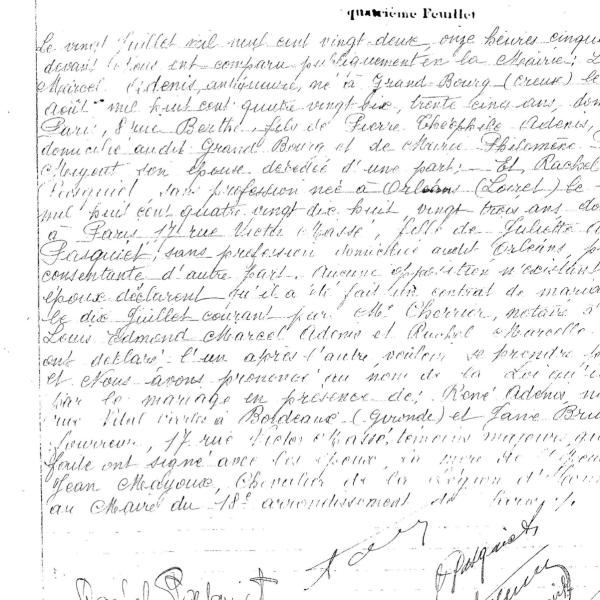 quatrième Feuillet
Le vingt Juillet mil neuf cent vingt-deux, onze heures cinqu
devant Nous ont comparu publiquement en la Mairie: L
Marcel Adenis, antiquaire, né à Grand-Bourg (Creuse) le
Août mil huit cent quatre vingt six, trente cinq ans, dom
Paris, 8 rue Berthe, fils de Pierre Théophile Adenis,
domicilié audit Grand Bourg et de Marie Philomène
son épouse décédée d'une part; — Et Rachel
Pasquiet sans profession née à Orléans (Loiret) le
mil huit cent quatre vingt dix huit, vingt trois ans do
à Paris 17 rue Victor Massé, fille de Juliette
Pasquiet, sans profession domiciliée audit Orléans, p
consentante d'autre part. Aucune opposition n'existant
époux déclarent qu'il a été fait un contrat de maria
le dix Juillet courant par Me Cherrier, notaire à
Louis Edmond Marcel Adenis et Rachel Marcelle
ont déclaré l'un après l'autre vouloir se prendre p
et Nous avons prononcé au nom de la Loi qu'i
par le mariage en présence de: René Adenis, n
rue Vital Carles à Bordeaux (Gironde) et Jane Bru
17 rue Victor Massé, témoins majeurs, qui
faite ont signé avec les époux, la mère de l'épou
Jean Mayoux, Chevalier de la Légion d'Honn
au Maire du 18e arrondissement de Paris ./.
Pasquiet